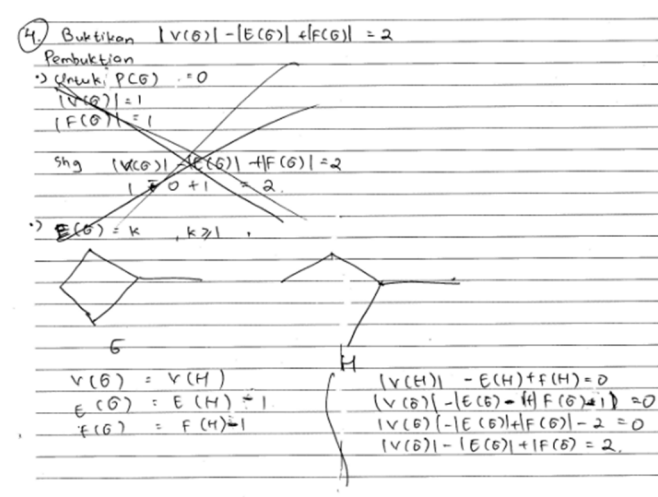 4. Buktikan |V(G)| - |E(G)| + |F(G)| = 2
Pembuktian
•) Untuk, P(G) = 0
|V(G)| = 1
|F(G)| = 1
Shg |V(G)| - |E(G)| + |F(G)| = 2
1 - 0 + 1 = 2.
•) E(G) = k , k ≥ 1 .
G
H
V(G) = V(H)
E(G) = E(H) - 1
F(G) = F(H) - 1
|V(H)| - E(H) + F(H) = 0
|V(G)| - |E(G) - 1| + | F(G) - 1| = 0
|V(G)| - |E(G)| + |F(G)| - 2 = 0
|V(G)| - |E(G)| + |F(G) = 2.